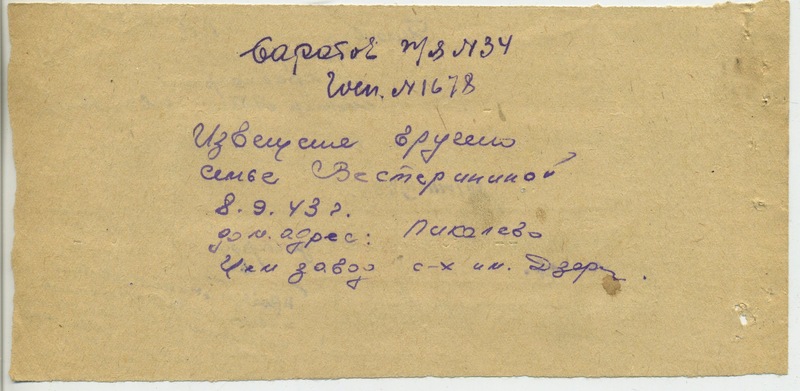 Саратов п/я N34
Госп. N1678
Извещение вручено
семье Вестерининой
8.9.43 г.
дом. адрес: Пикалево
Цем завод с-х им. Дзерж.